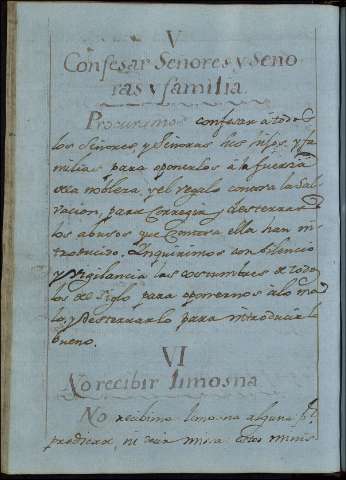 V
Confesar Señores y Seño
ras y familia.
Procurimos confesar â todos
los Señores, y Señoras sus hijos, y fa
milias para oponerlos â la fuerza
de la nobleza, y el regalo contra la Sal
vacion, para corregir, y desterrar
los abusos que contra ella han in
troducido. Inquirimos con silencio
y vigilancia las costumbres de todo
los del siglo para oponernos âlo ma
lo, y desterrarlo para introducir lo
bueno.
VI
No recibir limosna
No recibimos limosna alguna pr.
predicar, ni decir misa estos minis